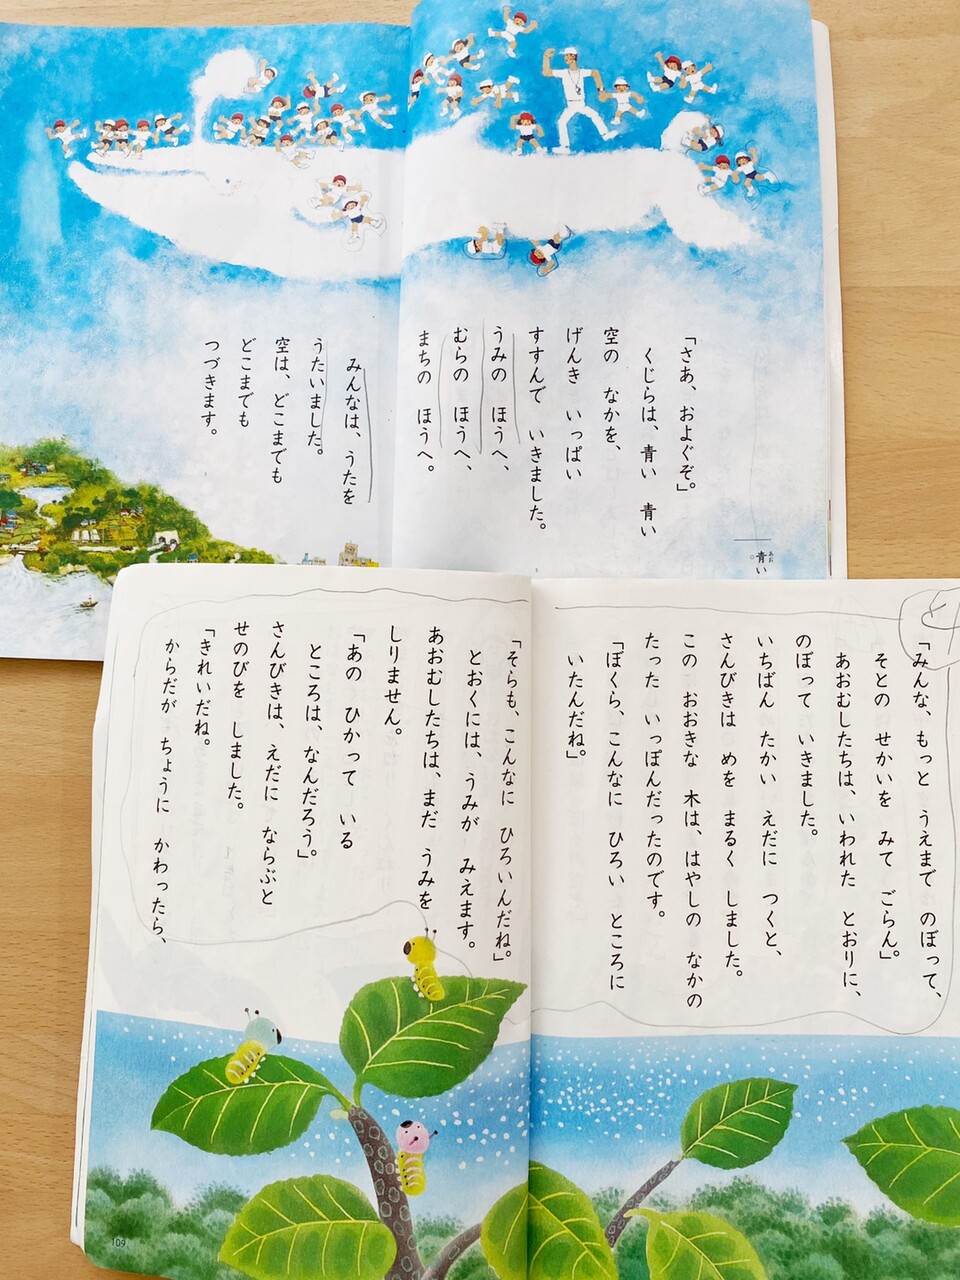 「さあ、およぐぞ。」
くじらは、青い 青い
空の なかを、
げんき いっぱい
すすんで いきました。
うみの ほうへ、
むらの ほうへ、
まちの ほうへ。
みんなは、うたを
うたいました。
空は、どこまでも
どこまでも
つづきます。
青い
あお
「みんな、もっと うえまで のぼって、
そとの せかいを みて ごらん。」
あおむしたちは、いわれた とおりに、
のぼって いきました。
いちばん たかい えだに つくと、
さんびきは めを まるく しました。
この おおきな 木は、はやしの なかの
たった いっぽんだったのです。
「ぼくら、こんなに ひろい ところに
いたんだね。」
「そらも、こんなに ひろいんだね。」
とおくには、うみが みえます。
あおむしたちは、まだ うみを
しりません。
「あの ひかって いる
ところは、なんだろう。」
さんびきは、えだに ならぶと
せのびを しました。
「きれいだね。
からだが ちょうに かわったら、
109